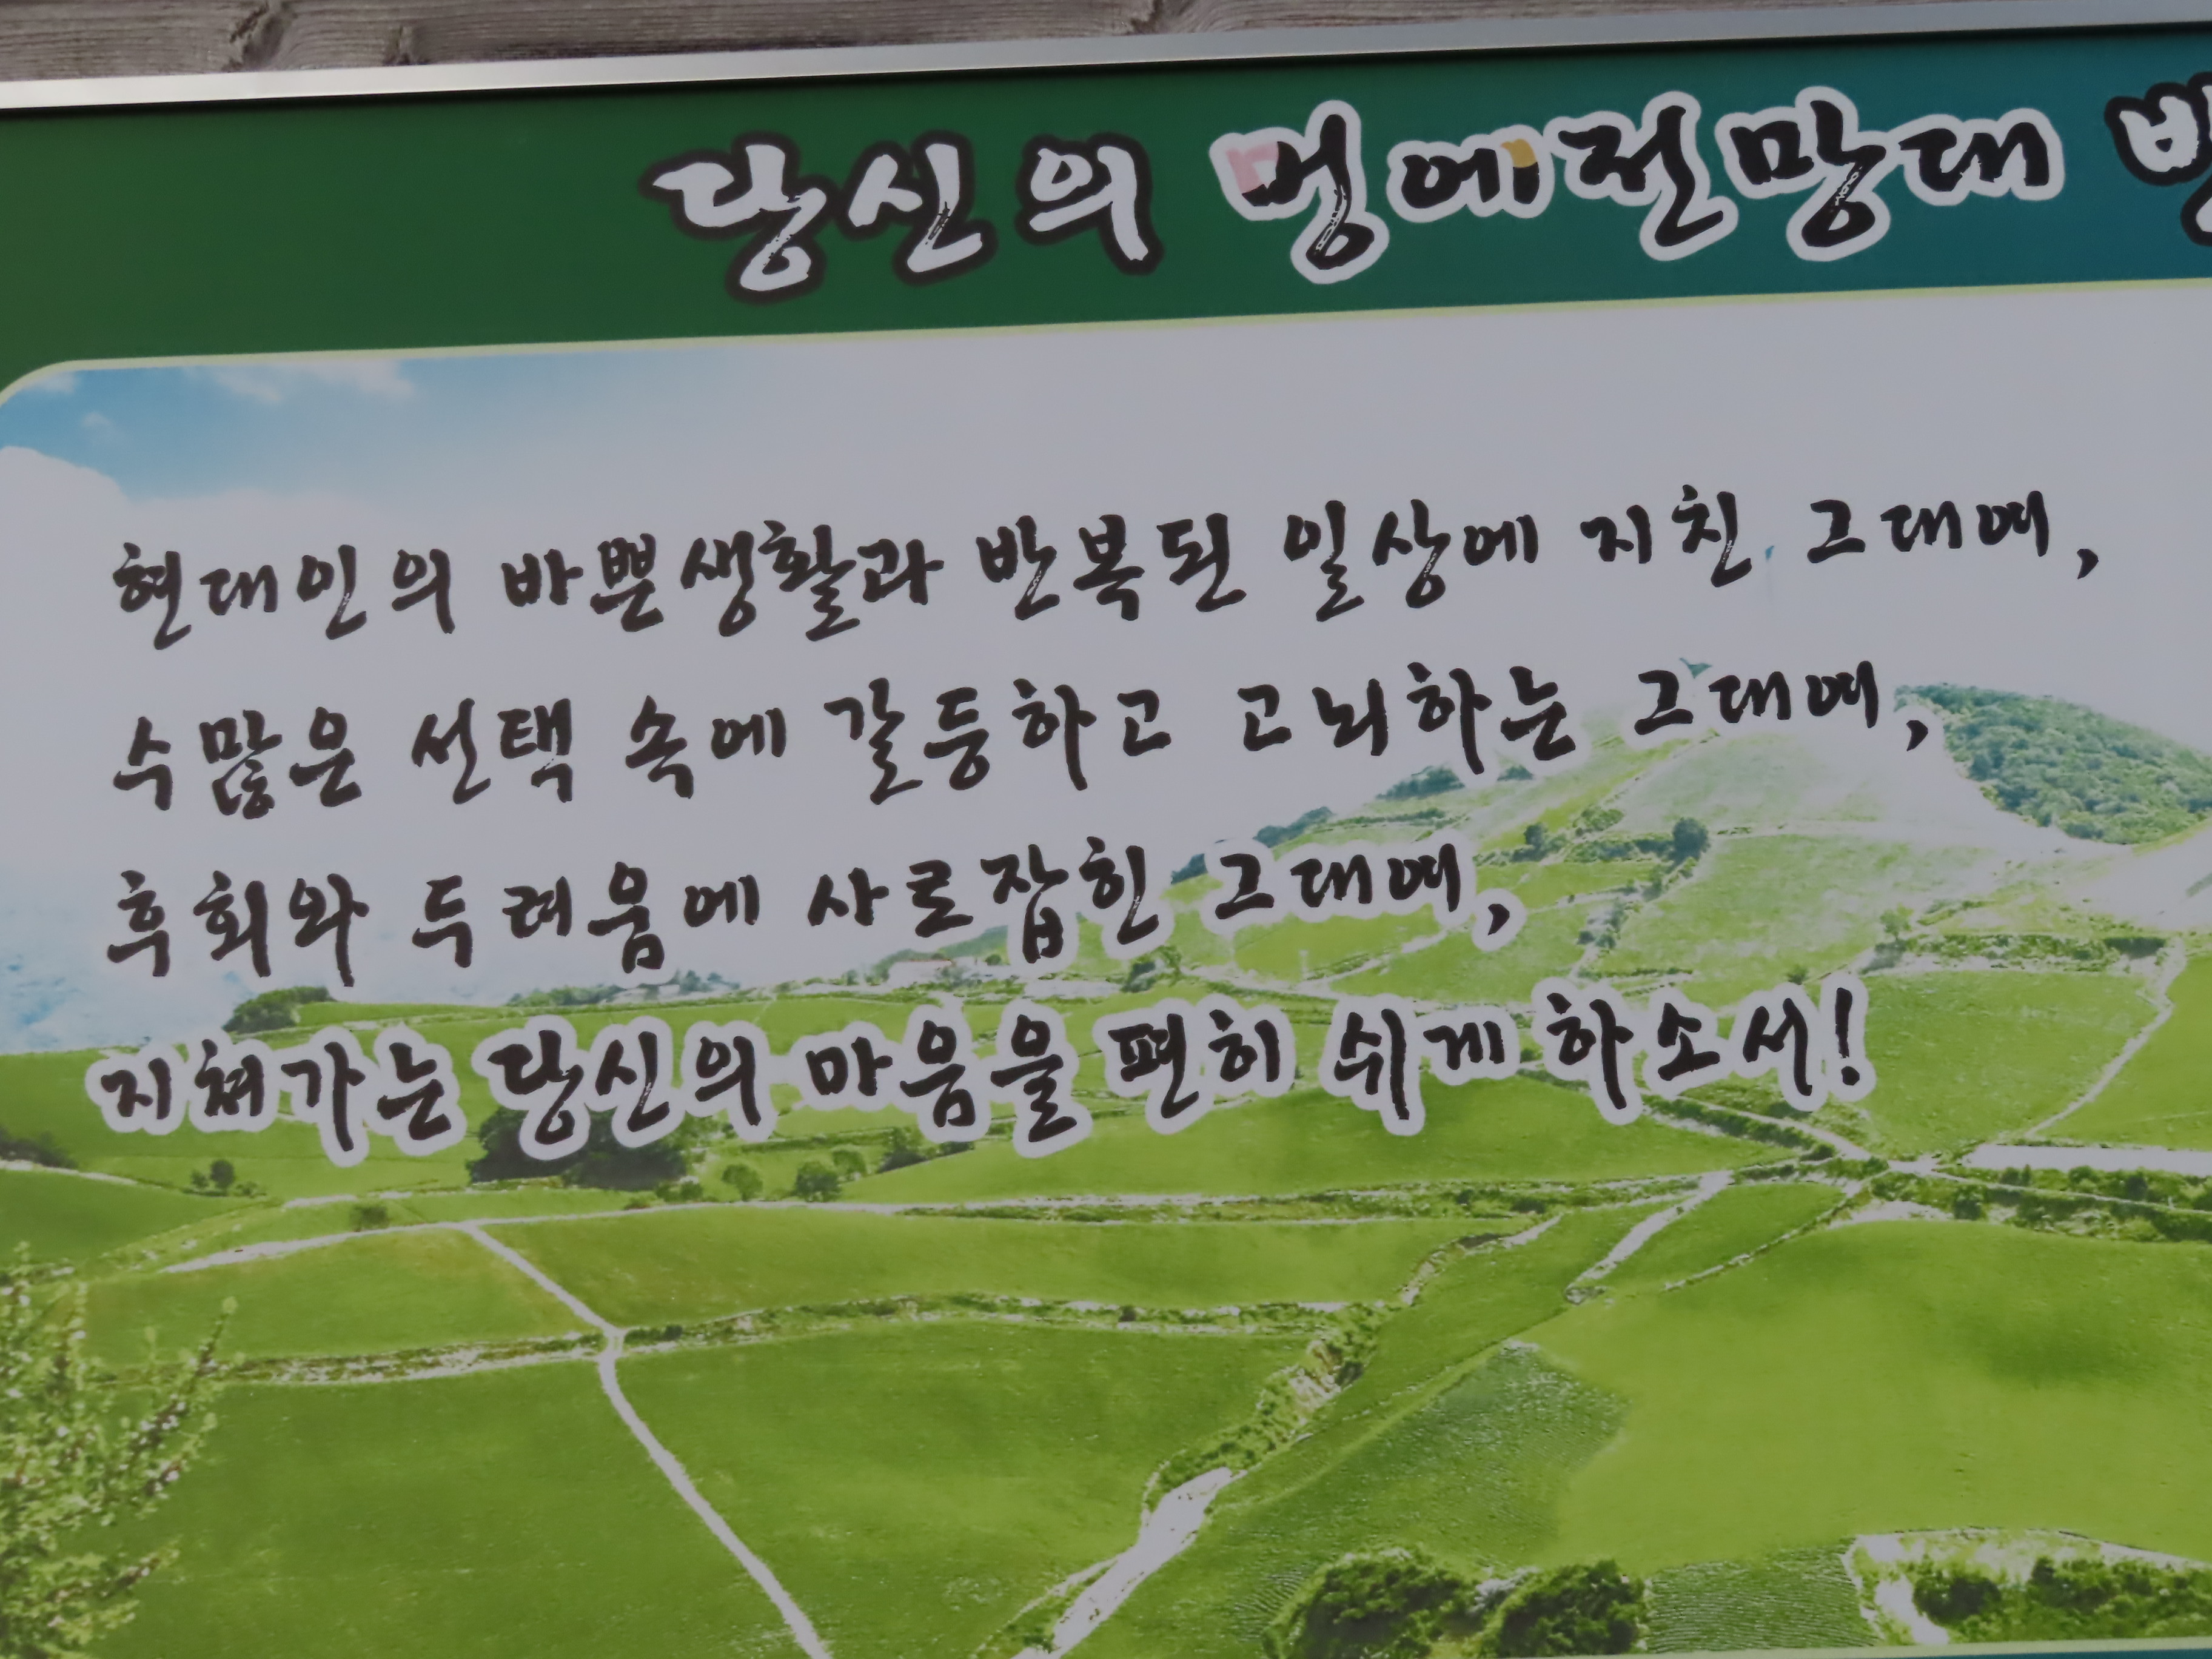 당신의 멍에전망대
현대인의 바쁜생활과 반복된 일상에 지친 그대여,
수많은 선택 속에 갈등하고 고뇌하는 그대여,
후회와 두려움에 사로잡힌 그대여,
지쳐가는 당신의 마음을 편히 쉬게 하소서!